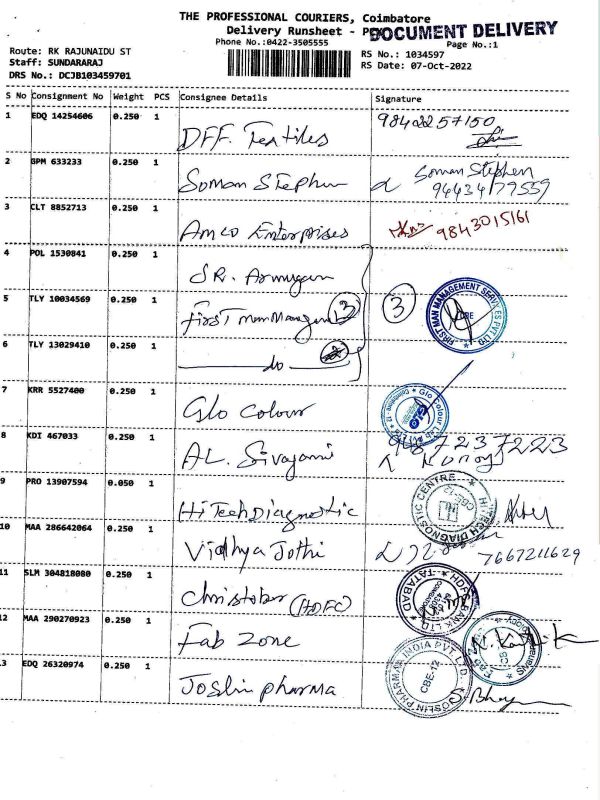 THE PROFESSIONAL COURIERS, Coimbatore
Delivery Runsheet - DOCUMENT DELIVERY
Phone No.:0422-3505555
Page No.:1
Route: RK RAJUNAIDU ST
RS No.: 1034597
Staff: SUNDARARAJ
RS Date: 07-Oct-2022
DRS No.: DCJB103459701
S No Consignment No Weight PCS Consignee Details Signature
1 EDQ 14254606 0.250 1 DFF. Textiles 9842257150
2 GPM 633233 0.250 1 Soman Stephen Soman Stephen
9443479559
3 CLT 8852713 0.250 1 Amco Enterprises 9843015161
4 POL 1530841 0.250 1 SR. Armugan
5 TLY 10034569 0.250 1 First Man Manage 3 3 FIRST MAN MANAGEMENT SERVICES PVT LTD
6 TLY 13029410 0.250 1 do
7 KRR 5527400 0.250 1 Glo Colour Glo Colour Lab Pvt Ltd GLO
8 KDI 467033 0.250 1 AL. Sivagami 7237223
9 PRO 13907594 0.050 1 HiTech Diagnostic HITECH DIAGNOSTIC CENTRE CBE-12
10 MAA 286642064 0.250 1 Vidhya Jothi 7667211629
11 SLM 304818080 0.250 1 Christober (HDFC) HDFC BANK LTD TATABAD
12 MAA 290270923 1 0.250 Fab Zone K. Karthik
13 EDQ 26320974 0.250 1 Joslin pharma JOSLIN PHARMA INDIA PVT LTD. CBE-12